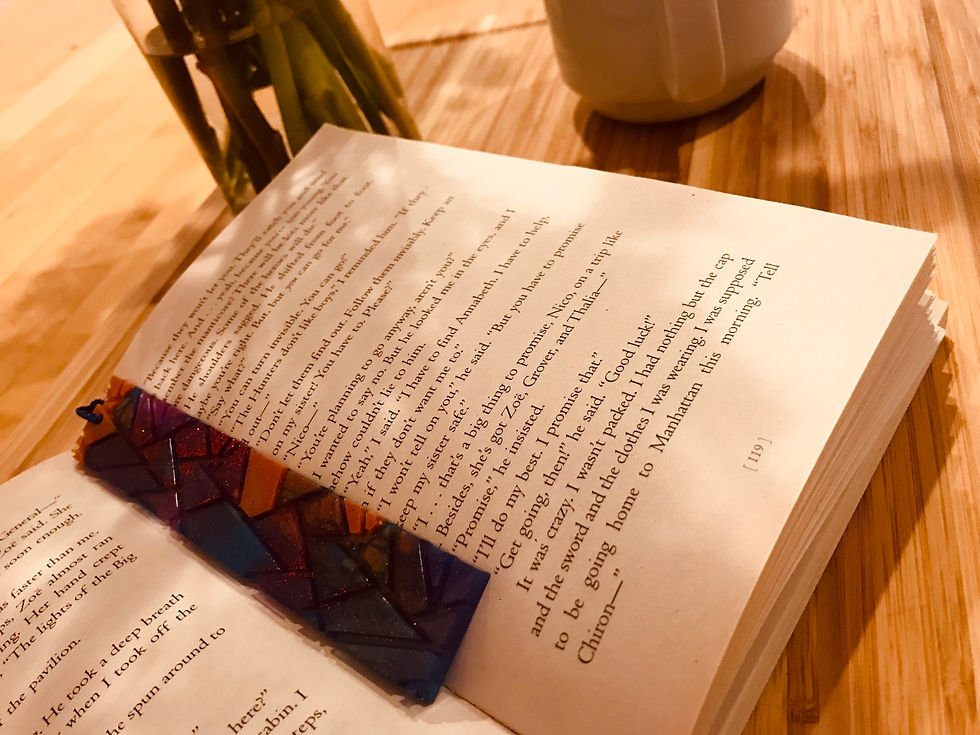 said. She
soon enough.
faster than me,
Zoë almost ran
Her hand crept
“The lights of the Big
the pavilion.
He took a deep breath
when I took off the
he spun around to
here?”
I
they won't let you. They'll catch you and send
back here. And
shoulders sagged. He shifted from foot to foot.
But you can go for me.”
“Say what?”
“You can turn invisible. You can go!”
“The Hunters don't like boys,” I reminded him. “If they
out—”
“Don't let them find out. Follow them invisibly. Keep an
on my sister! You have to. Please?”
“Nico—”
“You're planning to go anyway, aren't you?”
wanted to say no. But he looked me in the eyes, and I
how couldn't lie to him.
“Yeah,” I said. “I have to find Annabeth. I have to help,
if they don't want me to.”
“I won't tell on you,” he said. “But you have to promise
keep my sister safe.”
“I . . . that's a big thing to promise, Nico, on a trip like
Besides, she's got Zoë, Grover, and Thalia—”
“Promise,” he insisted.
“I'll do my best. I promise that.”
“Get going, then!” he said. “Good luck!”
It was crazy. I wasn't packed. I had nothing but the cap
and the sword and the clothes I was wearing. I was supposed
to be going home to Manhattan this morning. “Tell
Chiron—”
[ 119 ]